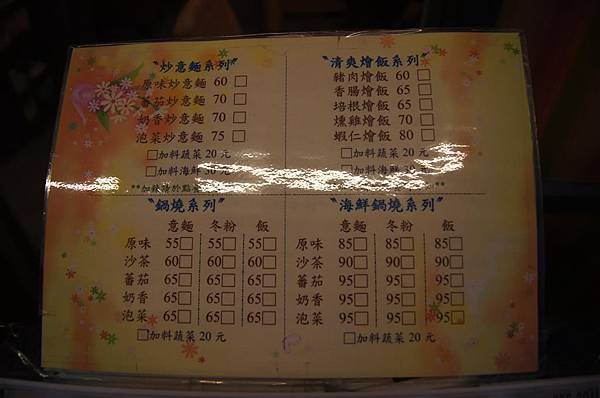 炒意麵系列
原味炒意麵 60 □
蕃茄炒意麵 70 □
奶香炒意麵 70 □
泡菜炒意麵 75 □
□加料蔬菜 20 元
□加料海鮮 30 元
清爽燴飯系列
豬肉燴飯 60 □
香腸燴飯 65 □
培根燴飯 65 □
燻雞燴飯 70 □
蝦仁燴飯 80 □
□加料蔬菜 20 元
□加料海鮮 30 元
鍋燒系列
意麵 冬粉 飯
原味 55□ 55□ 55□
沙茶 60□ 60□ 60□
蕃茄 65□ 65□ 65□
奶香 65□ 65□ 65□
泡菜 65□ 65□ 65□
□加料蔬菜 20 元
海鮮鍋燒系列
意麵 冬粉 飯
原味 85□ 85□ 85□
沙茶 90□ 90□ 90□
蕃茄 95□ 95□ 95□
奶香 95□ 95□ 95□
泡菜 95□ 95□ 95□
□加料蔬菜 20 元